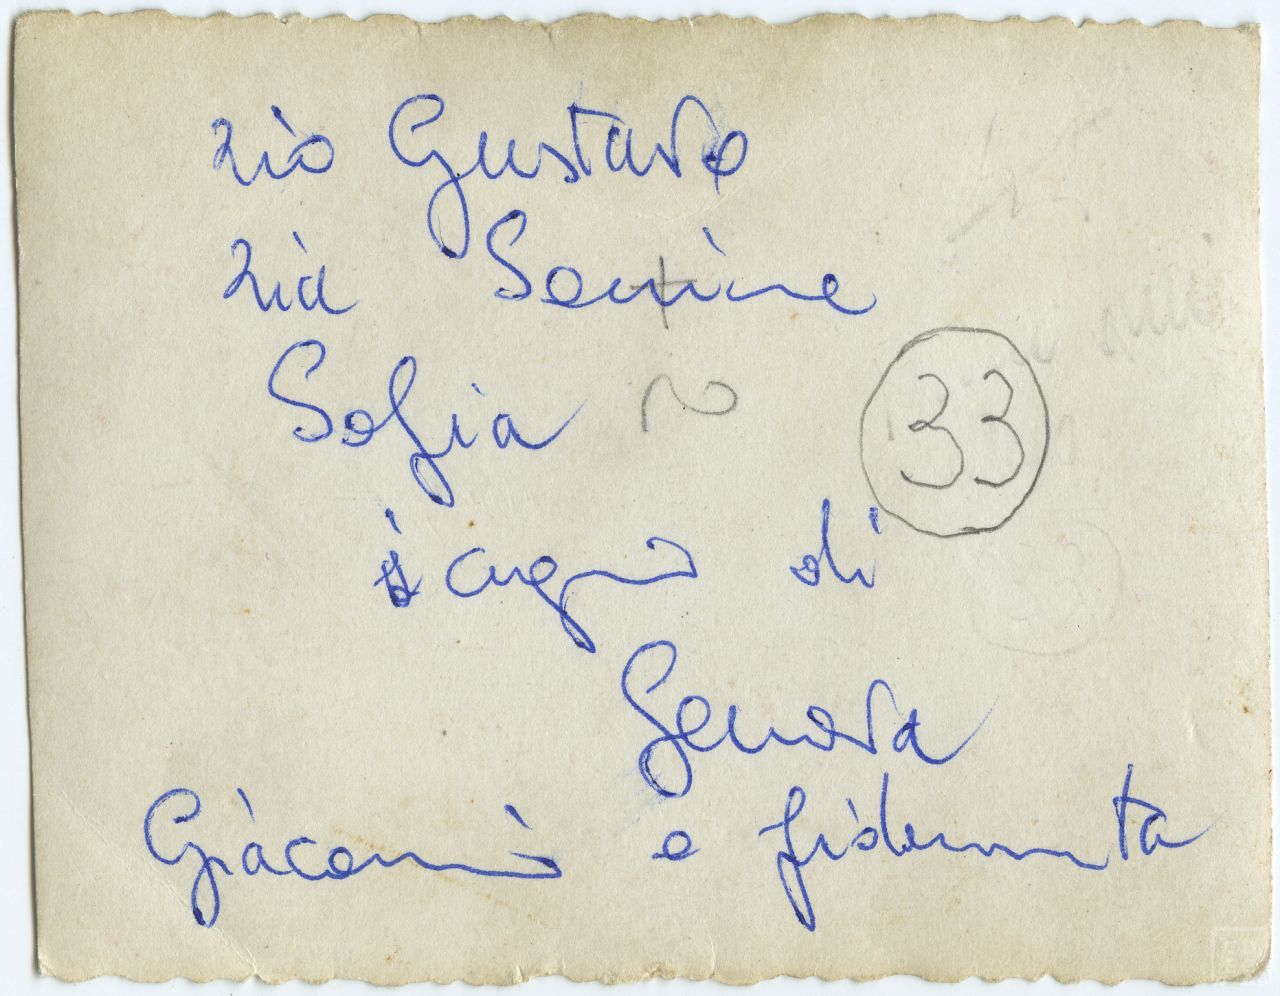 zio Gustavo
zia
Sofia
33
i cugini di
Genova
Giacomino e fidanzata